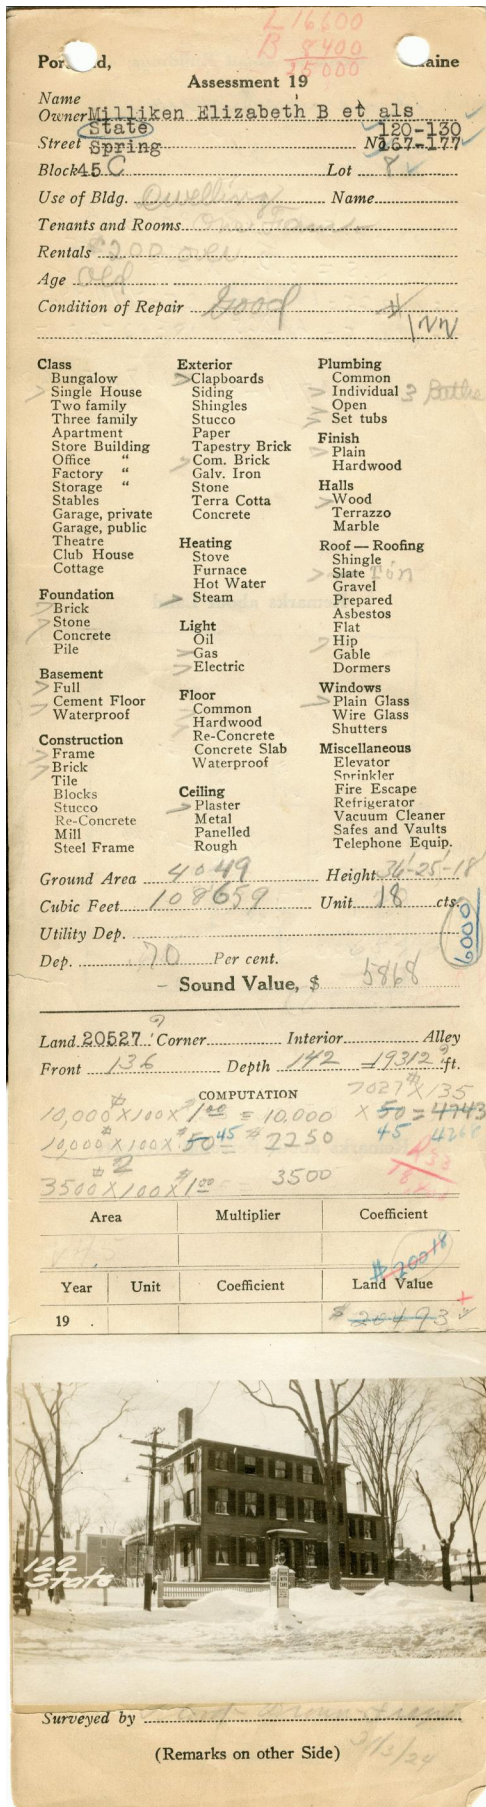 L 16600
B 8400
25000
Portland, Maine
Assessment 19
Name
Owner Milliken Elizabeth B et als
State 120-130
Street Spring No 167-177
Block 45 C Lot 8
Use of Bldg. Dwelling Name
Tenants and Rooms One Family
Rentals $200 over
Age Old
Condition of Repair Good
Class
Bungalow
Single House
Two family
Three family
Apartment
Store Building
Office "
Factory "
Storage "
Stables
Garage, private
Garage, public
Theatre
Club House
Cottage
Foundation
Brick
Stone
Concrete
Pile
Basement
Full
Cement Floor
Waterproof
Construction
Frame
Brick
Tile
Blocks
Stucco
Re-Concrete
Mill
Steel Frame
Exterior
Clapboards
Siding
Shingles
Stucco
Paper
Tapestry Brick
Com. Brick
Galv. Iron
Stone
Terra Cotta
Concrete
Heating
Stove
Furnace
Hot Water
Steam
Light
Oil
Gas
Electric
Floor
Common
Hardwood
Re-Concrete
Concrete Slab
Waterproof
Ceiling
Plaster
Metal
Panelled
Rough
Plumbing
Common
Individual 3 Baths
Open
Set tubs
Finish
Plain
Hardwood
Halls
Wood
Terrazzo
Marble
Roof — Roofing
Shingle
Slate Tin
Gravel
Prepared
Asbestos
Flat
Hip
Gable
Dormers
Windows
Plain Glass
Wire Glass
Shutters
Miscellaneous
Elevator
Sprinkler
Fire Escape
Refrigerator
Vacuum Cleaner
Safes and Vaults
Telephone Equip.
Ground Area 4049 Height 34-25-18
Cubic Feet 108659 Unit 18 cts.
Utility Dep.
6000
Dep. 70 Per cent.
Sound Value, $ 5868
Land 20527 Corner Interior Alley
Front 136 Depth 142 19312 ft.
COMPUTATION
7027 X 135
10,000 X 100 X $1 00 = 10,000 X 50 = 4743
10,000 X 100 X 50 45 $2250 45
3500 X 100 X $1 00 3500
Area Multiplier Coefficient
$20018
Year Unit Coefficient Land Value
19 . $20493
122
State
Surveyed by
3/13/24
(Remarks on other Side)